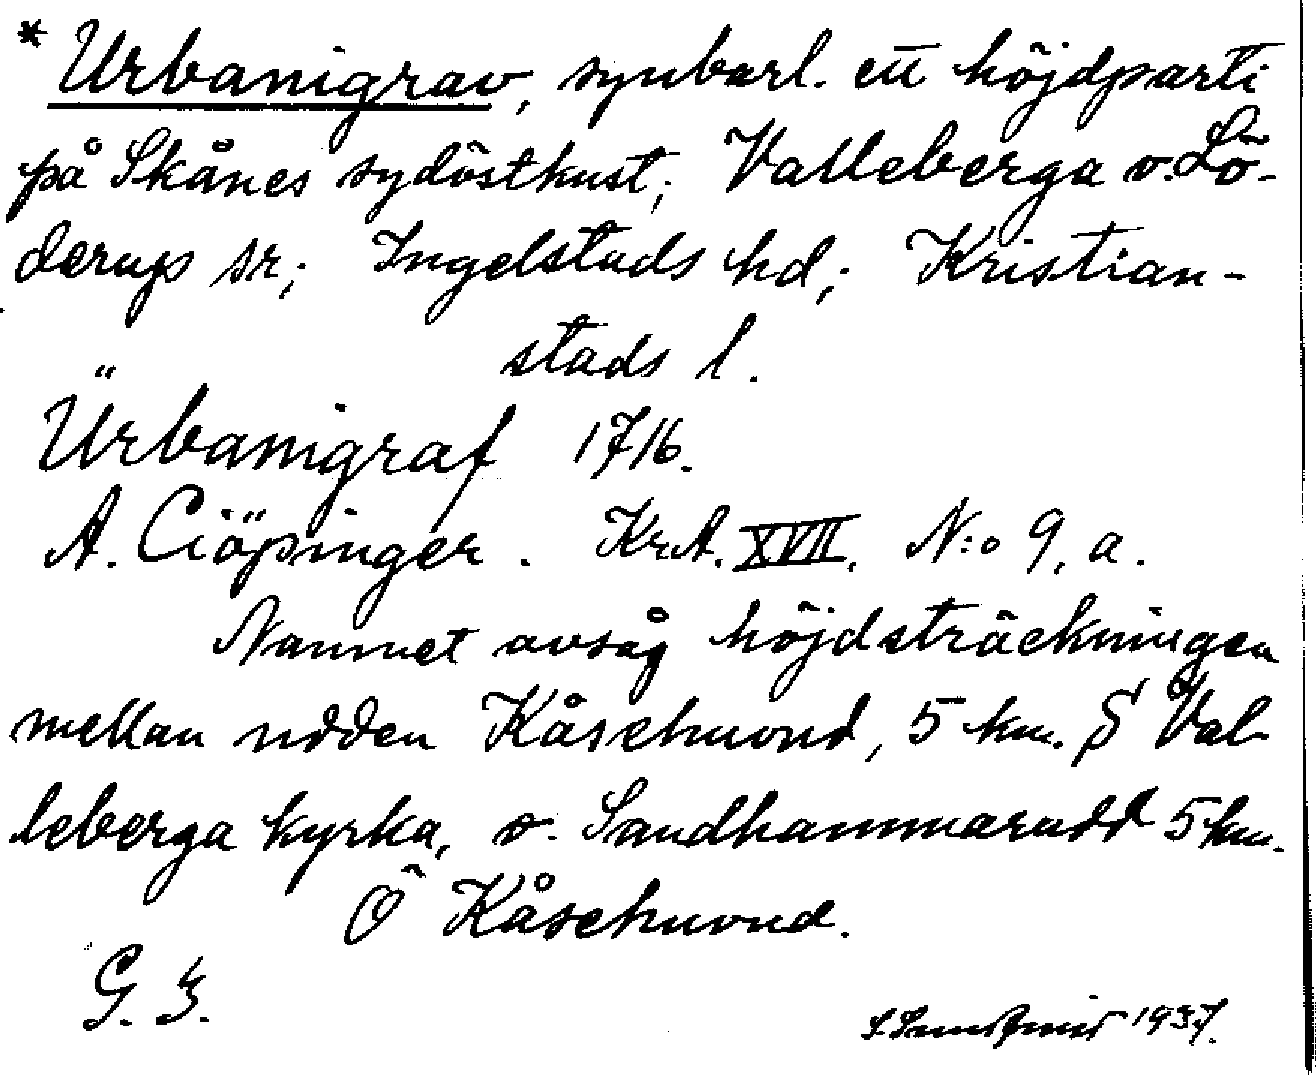 * Urbanigrav, synbarl. ett höjdparti
på Skånes sydöstkust; Valleberga o. Lö-
derups sr; Ingelstads hd; Kristian-
stads l.
Ürbanigraf 1716.
A. Ciöpinger. KrA. XVII. N:o 9, a.
Namnet avsåg höjdsträckningen
mellan udden Kåsehuvud, 5 km. S Val-
leberga kyrka, o. Sandhammarudd 5 km.
Ö Kåsehuvud.
G. 3.
1937.